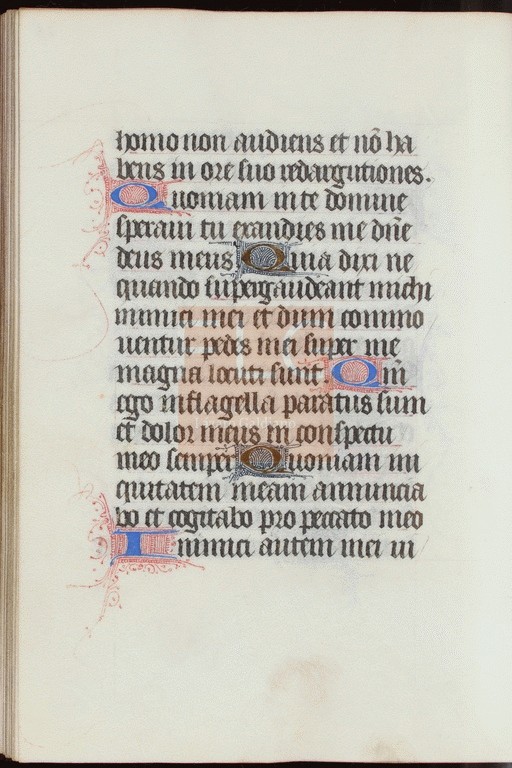 homo non audiens et nō ha
bens in ore suo redargutiones.
Quoniam in te domine
speraui tu exaudies me dn̄e
deus meus Quia dixi ne
quando supergaudeant michi
inimici mei et dum commo
uentur pedes mei super me
magna locuti sunt Qm̄
ego in flagella paratus sum
et dolor meus in conspectu
meo semper Quoniam ini
quitatem meam annuncia
bo et cogitabo pro peccato meo
Inimici autem mei ui